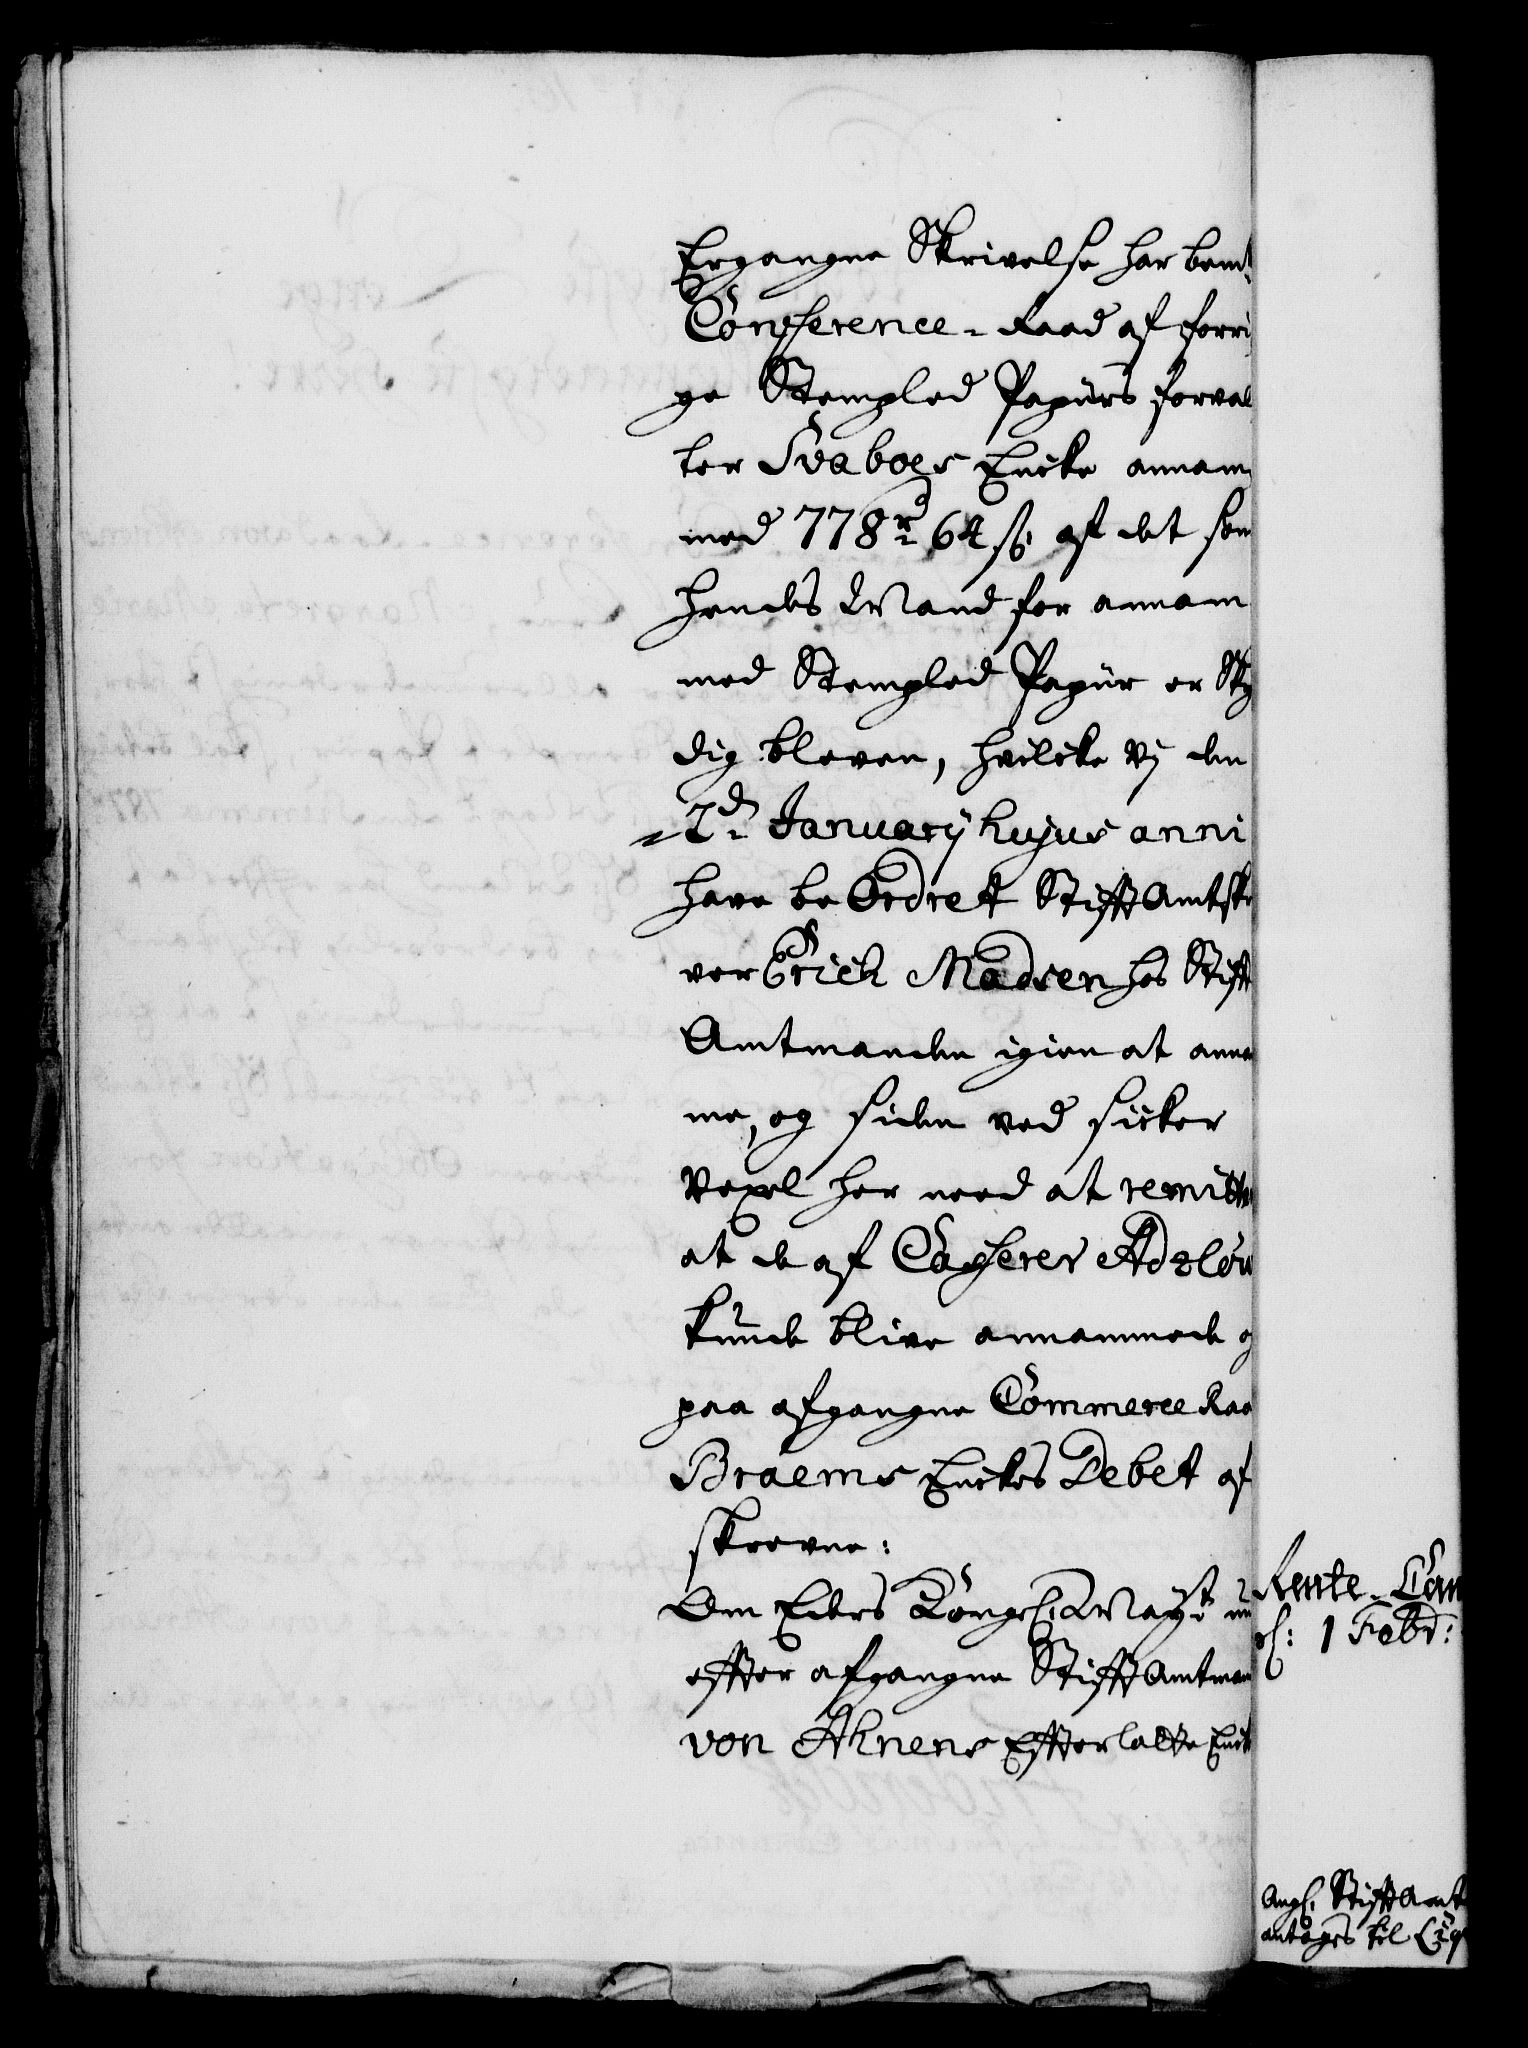 Ergangne Skrivelse har bemt
Conference-Raad af forri
ge Stempled Papiirs forval
ter Svaboes Encke annam
med 778 rd 64 ß af det som
hendes Mand for annam
med Stempled Papiir er Sky
dig bleven, hvilcke Vj den
2d January hujus anni
have be Ordret StifftAmtskr
ver Erich Madsen hos Stifft
Amtmanden igien at anna
me, og siden ved sicker
Vexel her need at remitte
at de af Casserer Adzlöw
kunde blive annammede og
paa afgangne Commerce Raa
Braems Enckes Debet af
skrevne:
Om Eders Kongl: Mayst
effter afgangne StifftAmtman
von Ahnens Effterladte Enck
Rente-Cam
1 Febr:
Ang: StifftAmt
antages til